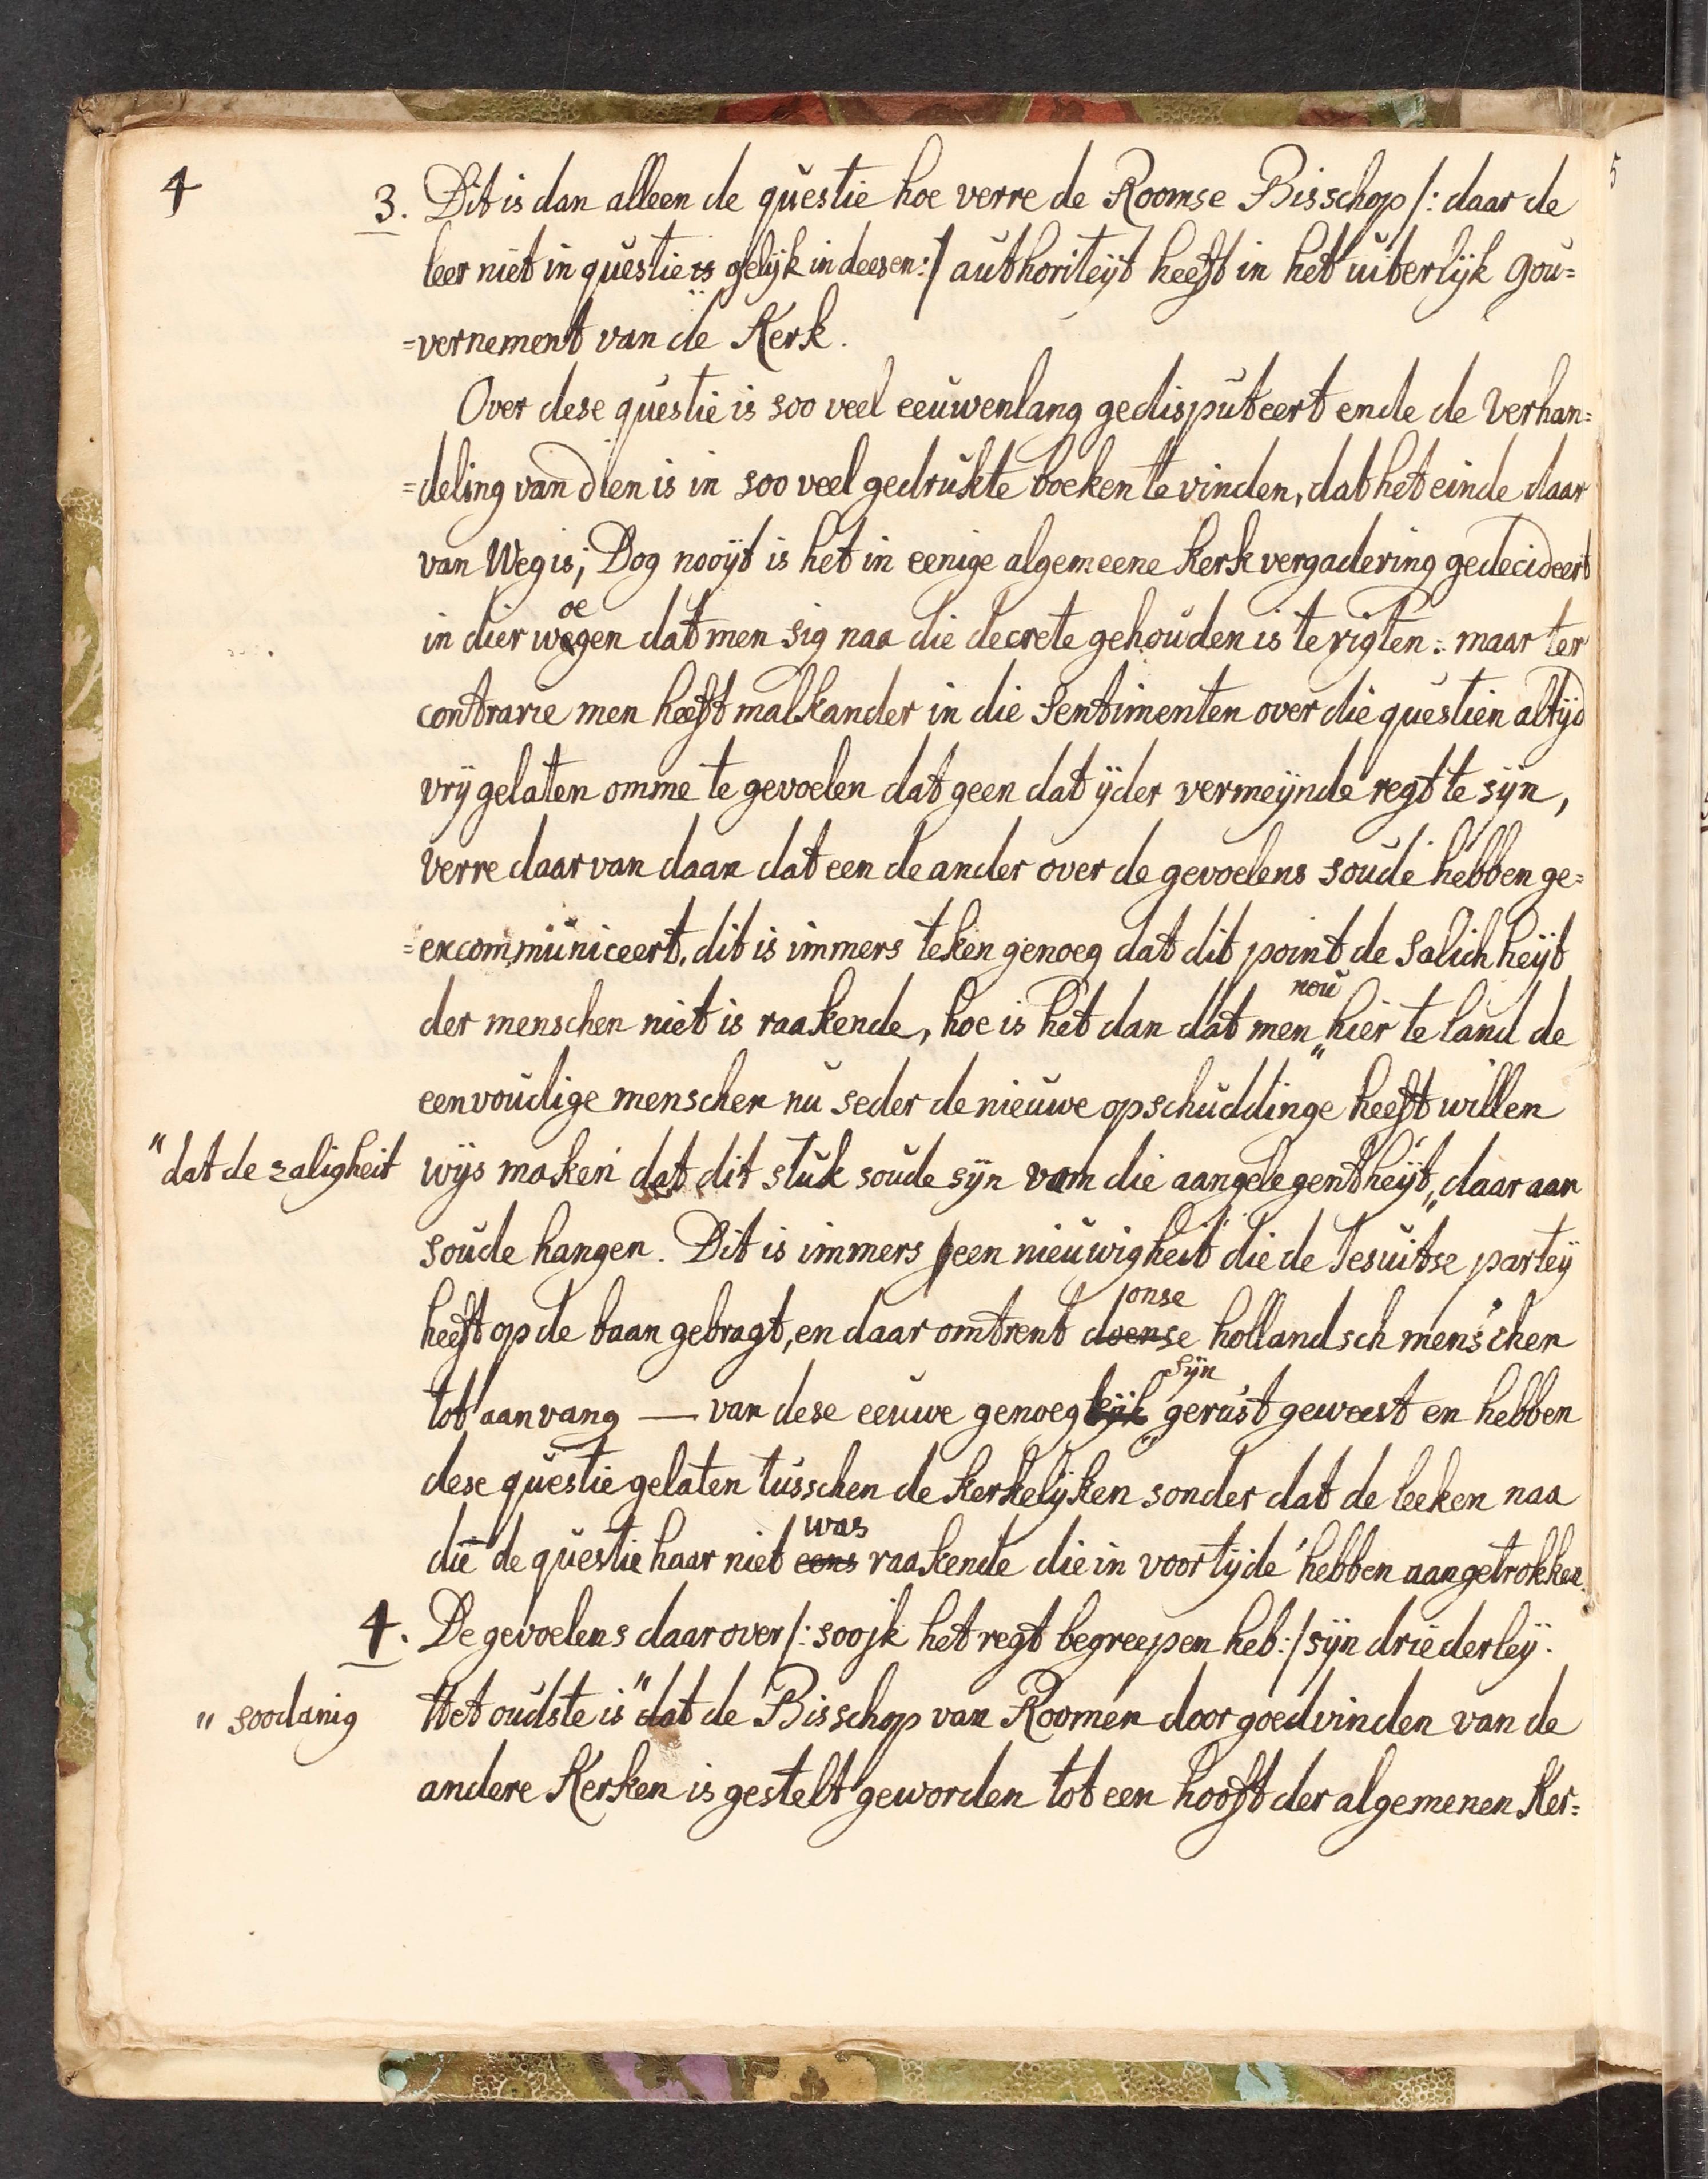 4
3. Dit is dan alleen de questie hoe verre de Roomse Bisschop /: daar de
leer niet in questie is gelijk in deesen :/ authoriteijt heeft in het uiterlijk gou=
=vernement van de Kerk.
Over dese questie is soo veel eeuwenlang gedisputeert ende de verhan=
=deling van dien is in soo veel gedrukte boeken te vinden, dat het einde daar
van Weg is; Dog nooijt is het in eenige algemeene kerkvergadering gedecideert
oe
in dier wegen dat men sig naa die decrete gehouden is te rigten: maar ter
contrarie men heeft malkander in die Sentimenten over die questien altijd
vrij gelaten omme te gevoelen dat geen dat ijder vermeijnde regt te sijn,
verre daar van daan dat een de ander over de gevoelens soude hebben ge=
=excommuniceert, dit is immers teken genoeg dat dit point de Salichheijt
nou
der menschen niet is raakende, hoe is het dan dat men „ hier te land de
eenvoudige menschen nu seder de nieuwe opschuddinge heeft willen
" dat de zaligheit wijs maken dat dit stuk soude sijn van die aangelegentheijt „ daar aan
soude hangen. Dit is immers een nieuwigheit die de Jesuitse partij
onse
heeft op de baan gebragt, en daar omtrent doense hollandsch menschen
sijn
tot aanvang — van dese eeuwe genoeglijk „ gerust geweest en hebben
dese questie gelaten tusschen de kerkelijken sonder dat de leeken naa
was
die de questie haar niet eens raakende die in voortijde hebben aangetrokken.
4. De gevoelens daar over /: soo jk het regt begreepen heb :/ sijn driederleij.
" soodanig Het oudste is " dat de Bisschop van Roomen door goedvinden van de
andere Kerken is gestelt geworden tot een hooft der algemenen Ker=
5